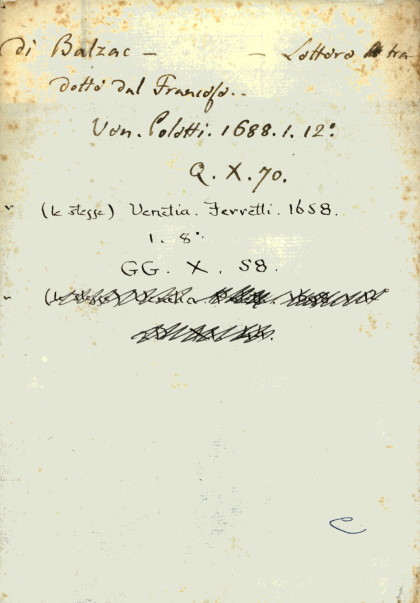 di Balzac - - Lettere tra
dotte dal Francese..
Ven. Polotti. 1688. 1. 12º
Q. X. 70.
(le stesse) Venetia. Ferretti. 1658.
1. 8º
GG. X. 58.
(le stesse) Venetia